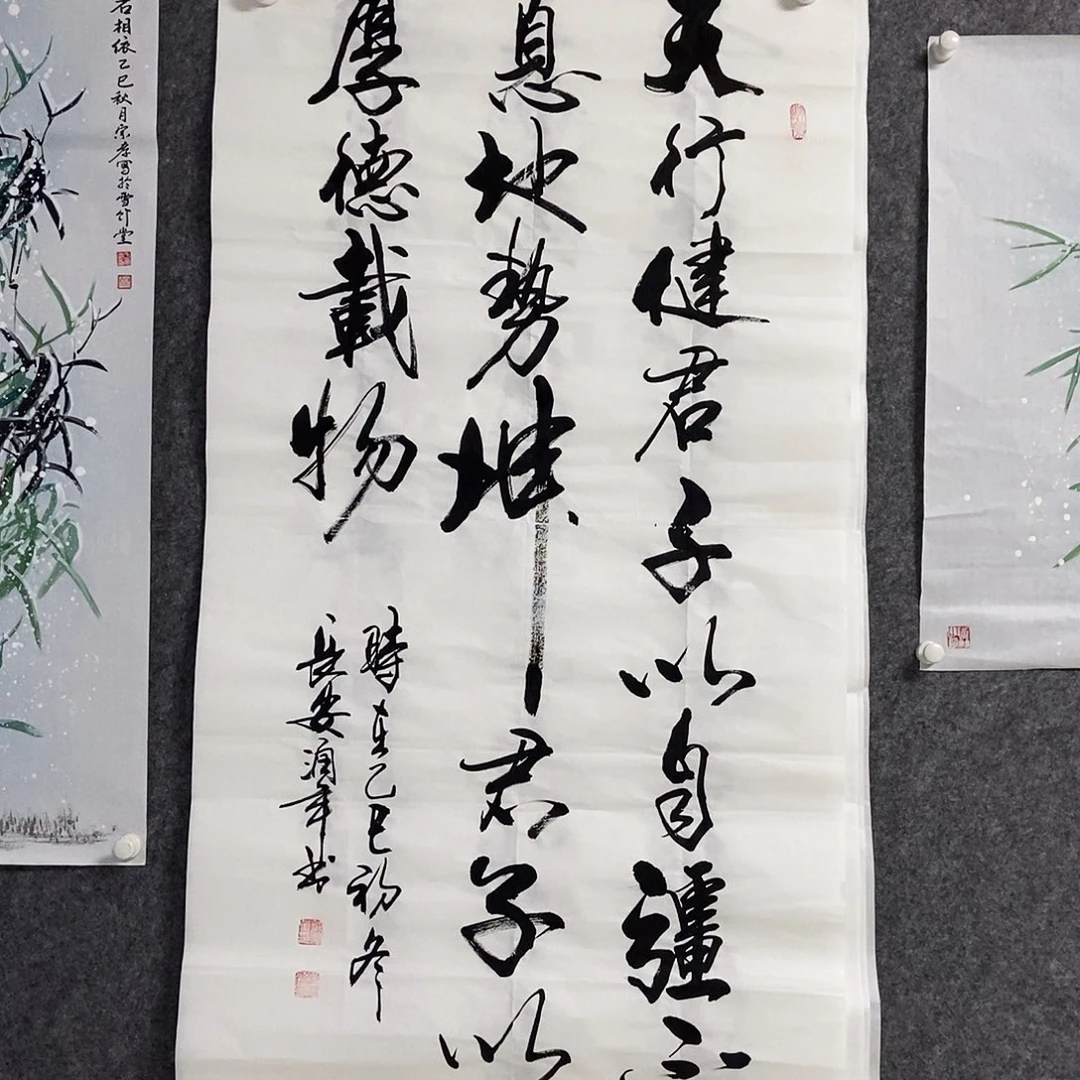 天行健君子以自疆不
息地势坤君子以
厚德載物
時在乙巳初冬
長安润年书
石相依乙巳秋月宗孝写於雪竹堂